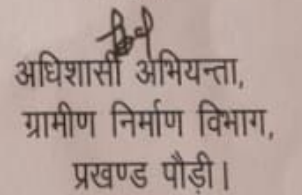 अधिशासी अभियन्ता,
ग्रामीण निर्माण विभाग,
प्रखण्ड पौड़ी।